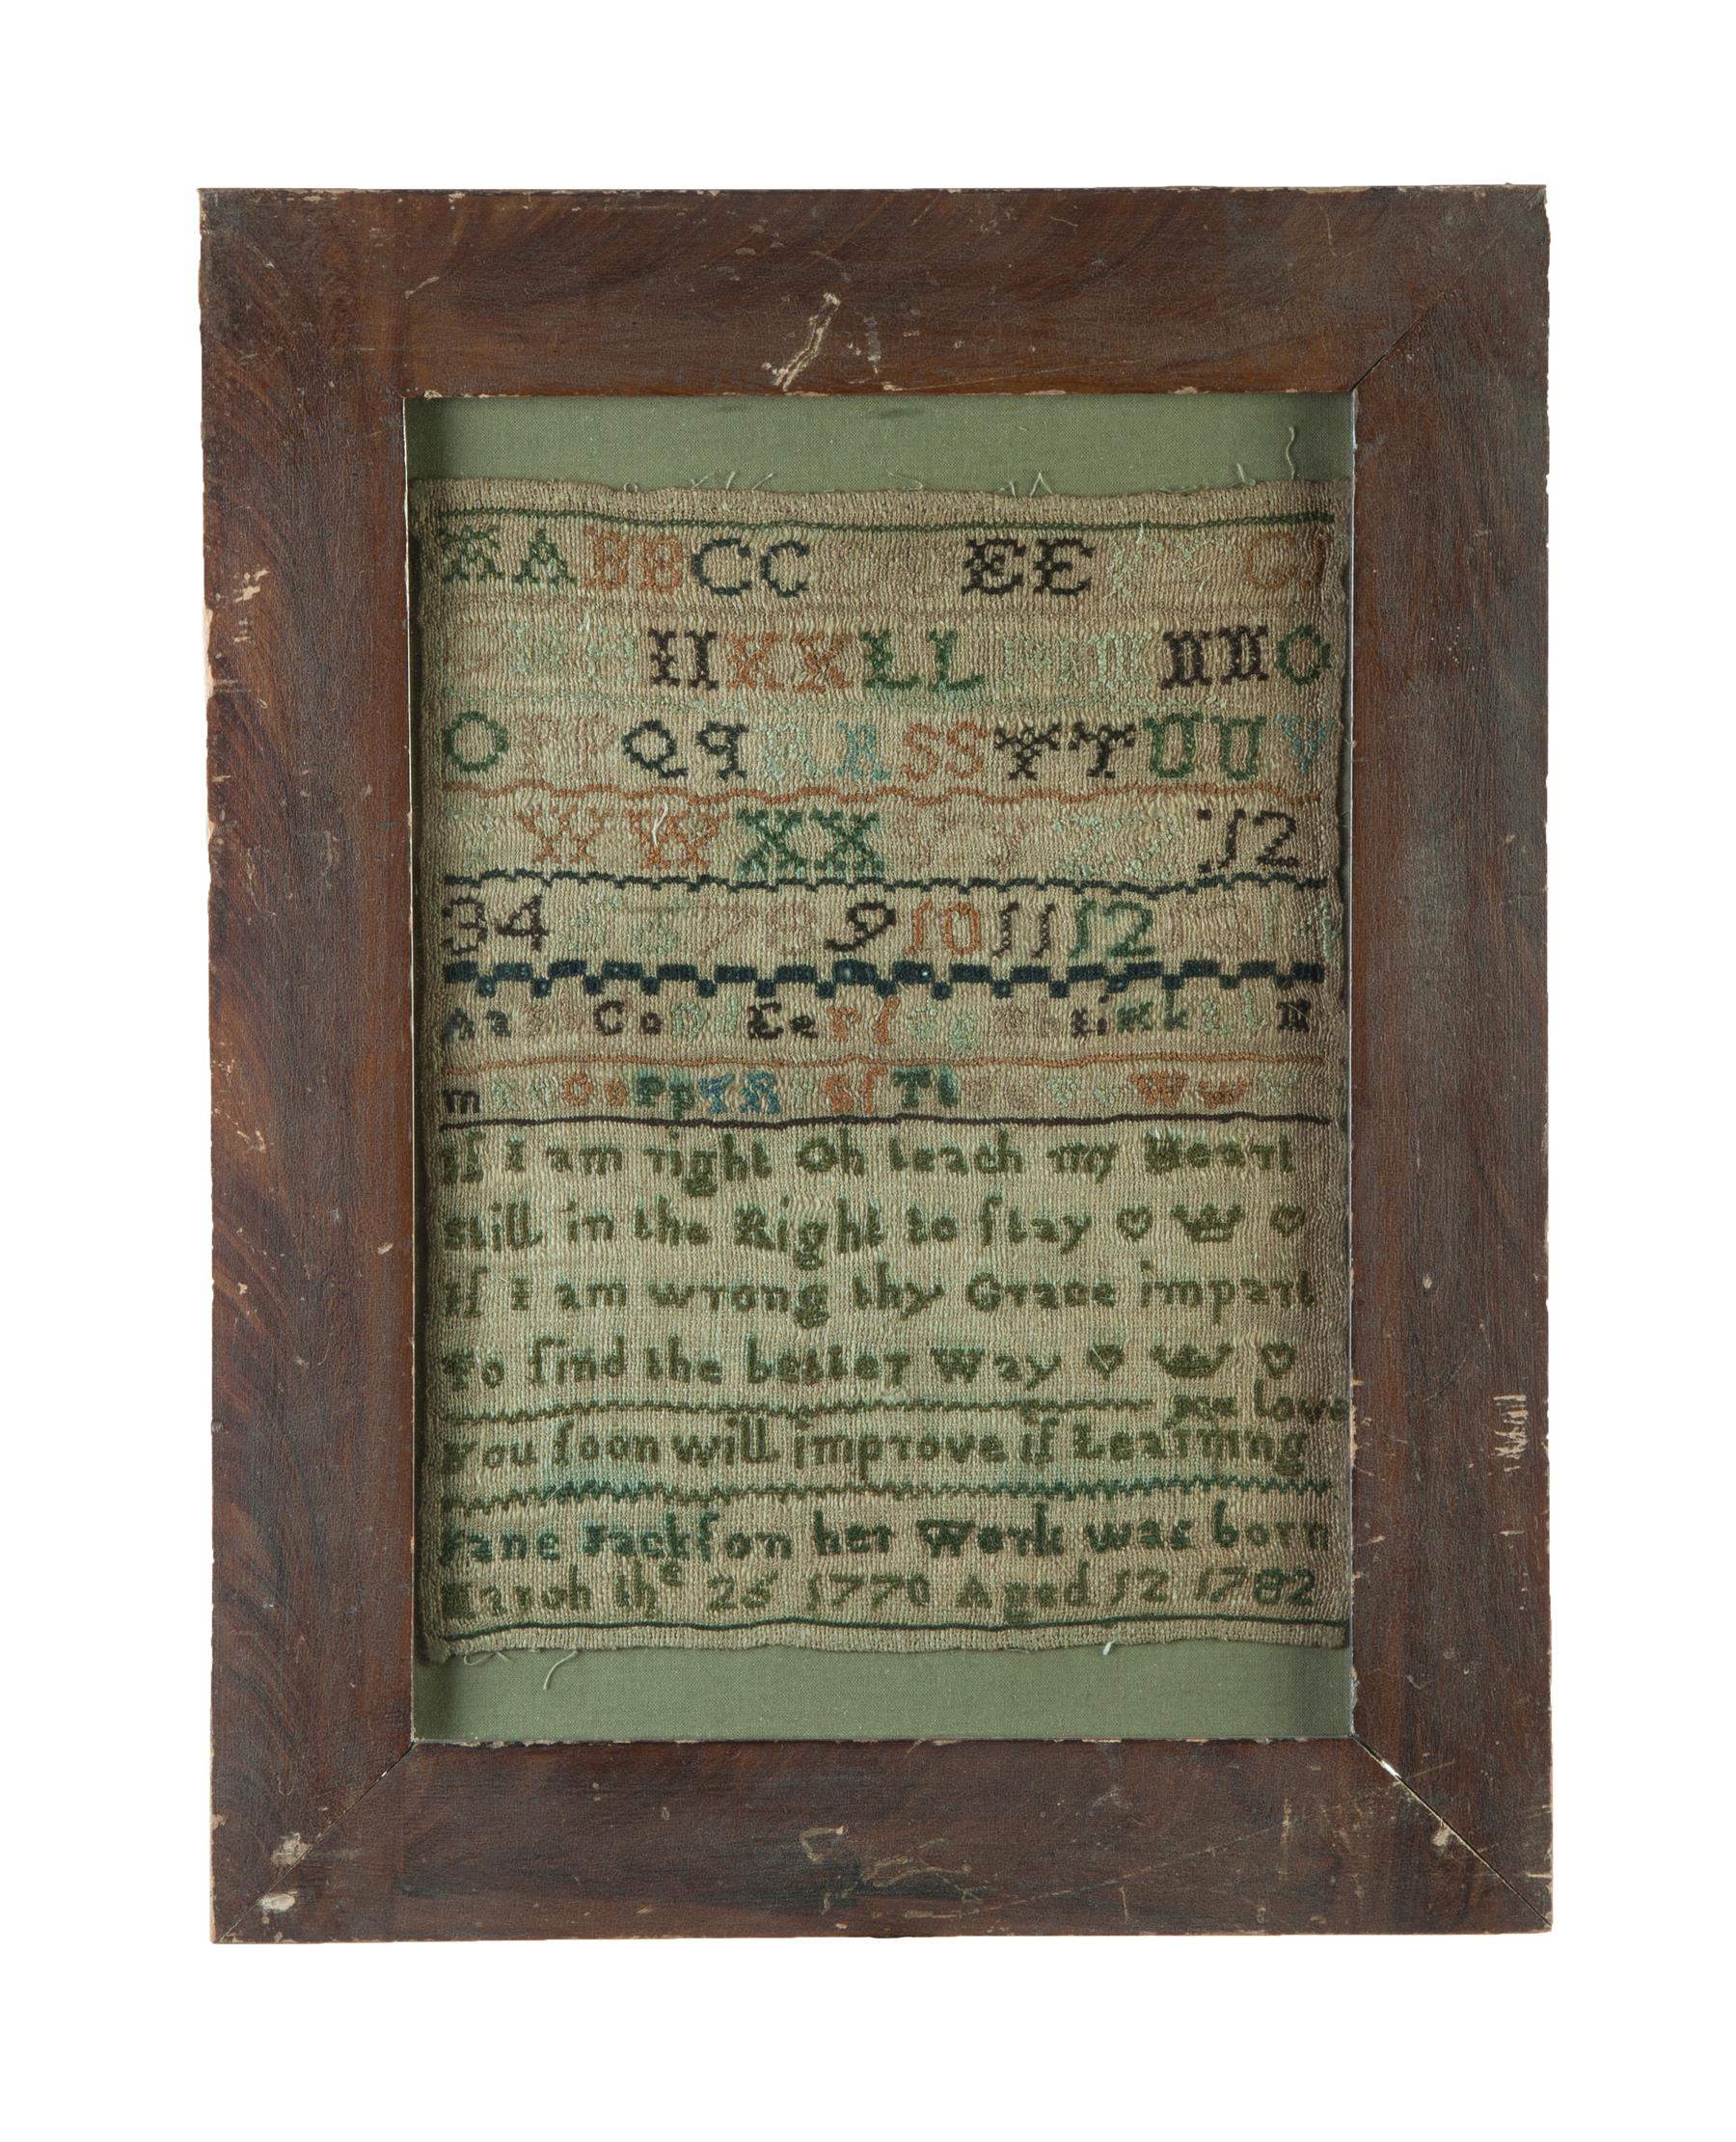 AABBCC EE G
HH IIKKLL MM NNO
OPPQqRRSSTTUUV
WWXX 12
34 6789 10 11 12
Aa Cc Dd Ee Ff Gg h Ii Kk Ll M
m n Oo Pp Rſs Tt W w
If I am right Oh teach my Heart
Still in the Right to ſtay
If I am wrong thy Grace impart
To find the better Way
you love
You ſoon will improve if Learning
Jane Jackſon her Work was born
March thᵉ 26 1770 Aged 12 1782